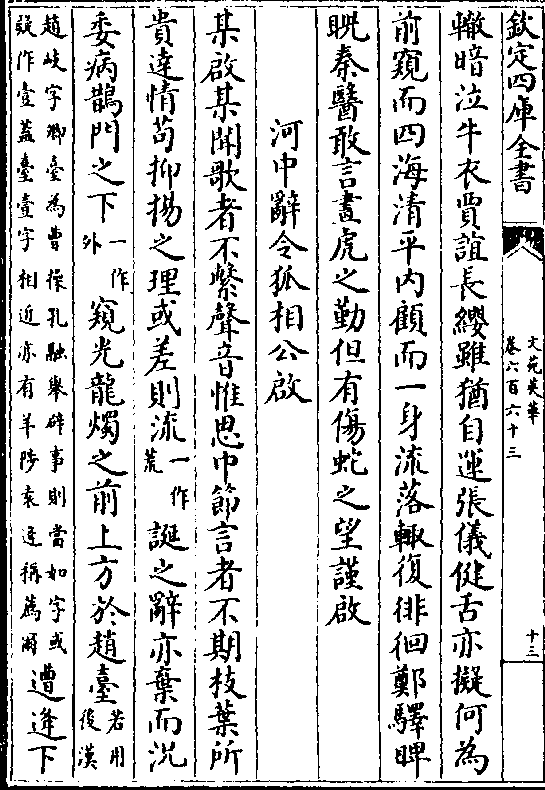 欽定四庫全書
文苑英華
卷六百六十三
十三
轍暗泣牛衣賈誼長纓雖猶自運張儀健舌亦擬何為
前窺而四海清平内顧而一身流落輙復徘徊鄭驛睥
睨秦醫敢言畫虎之勤但有傷蛇之望謹啟
河中辭令狐相公啟
某啟某聞歌者不繫聲音惟思中節言者不期枝葉所
貴達情苟抑揚之理或差則流一作荒誕之辭亦棄而況
委病鵲門之下一作外窺光龍燭之前上方於趙臺若用後漢
趙岐字卿臺為曹操孔融舉辟事則當如字或
疑作壹蓋臺壹字相近亦有羊陟袁逢稱薦爾遭逢下